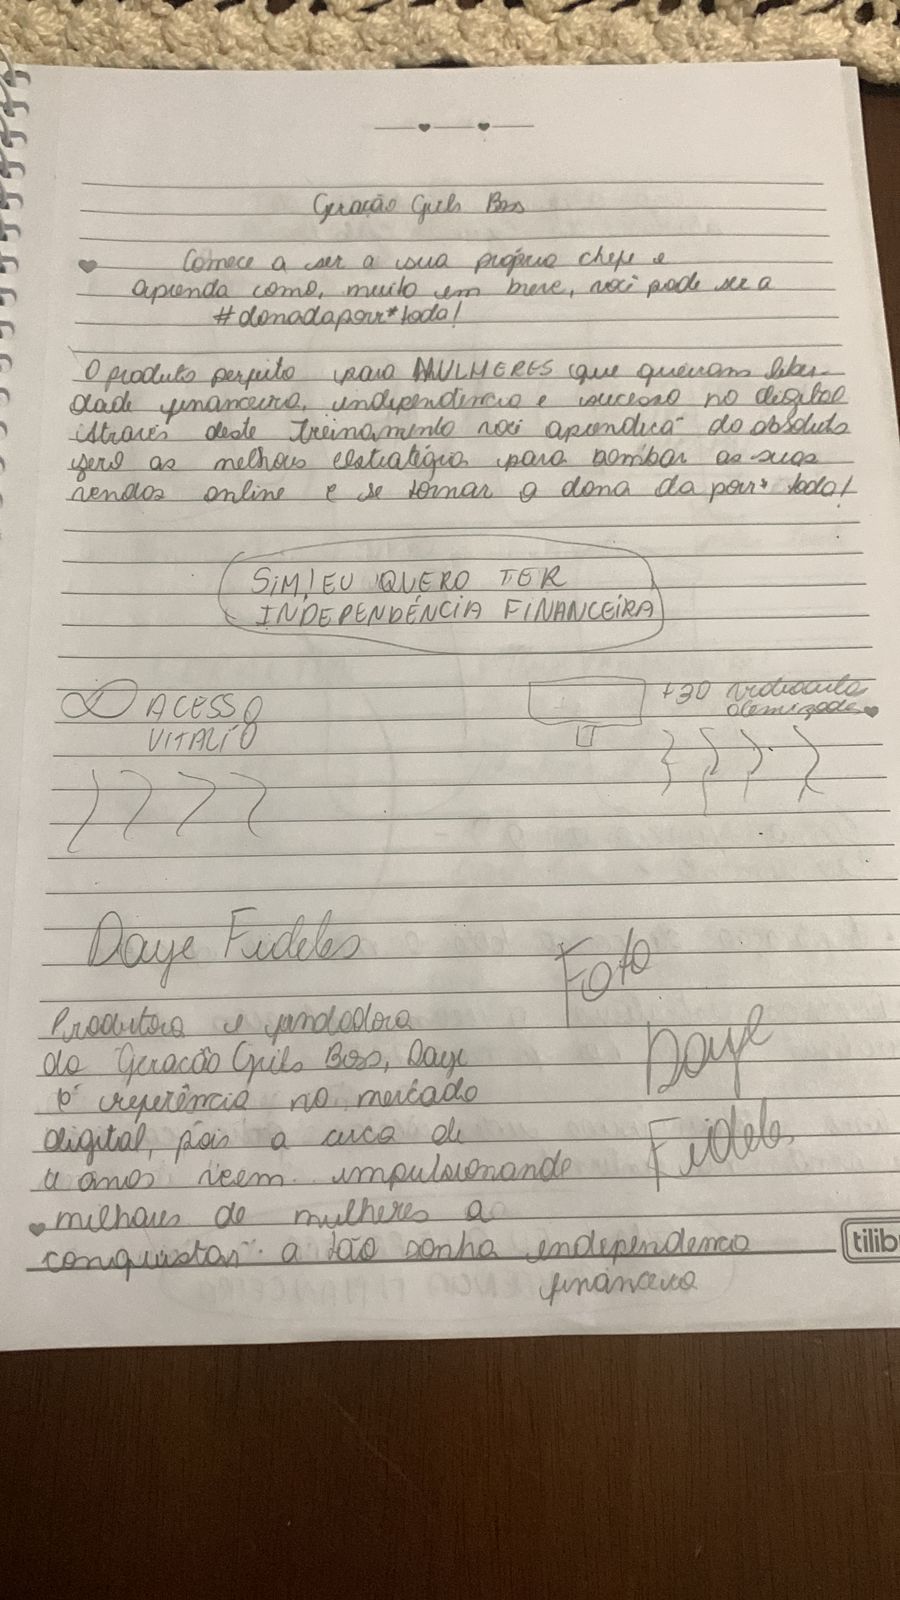 Geração Girls Boss
Comece a ser a sua própria chefe e
aprenda como, muito em breve, você pode ser a
#donadaporr*toda!
O produto perfeito para MULHERES que queiram liber-
dade financeira, independencia e sucesso no digital
Através deste treinamento você aprenderá do absoluto
zero as melhores estratégia para bombar as suas
vendas online e se tornar a dona da porr* toda!
SIM! EU QUERO TER
INDEPENDÊNCIA FINANCEIRA
ACESSO
VITALÍO
+30 videoaula
Daye Fideles
Foto
Daye
Fideles
Produtora e fundadora
do Geração Girls Boss, Daye
é referência no mercado
digital, pois a cerca de
4 anos veem impulsionando
milhares de mulheres a
conquistar a tão sonha independencia
financeira
tilib